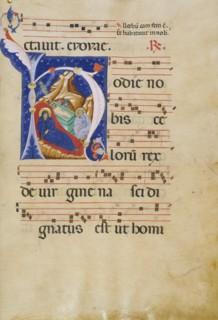 ctavit. evovae.
Hodie no
bis ce
lorum rex
de vir gine na sci di
gnatus est ut homi